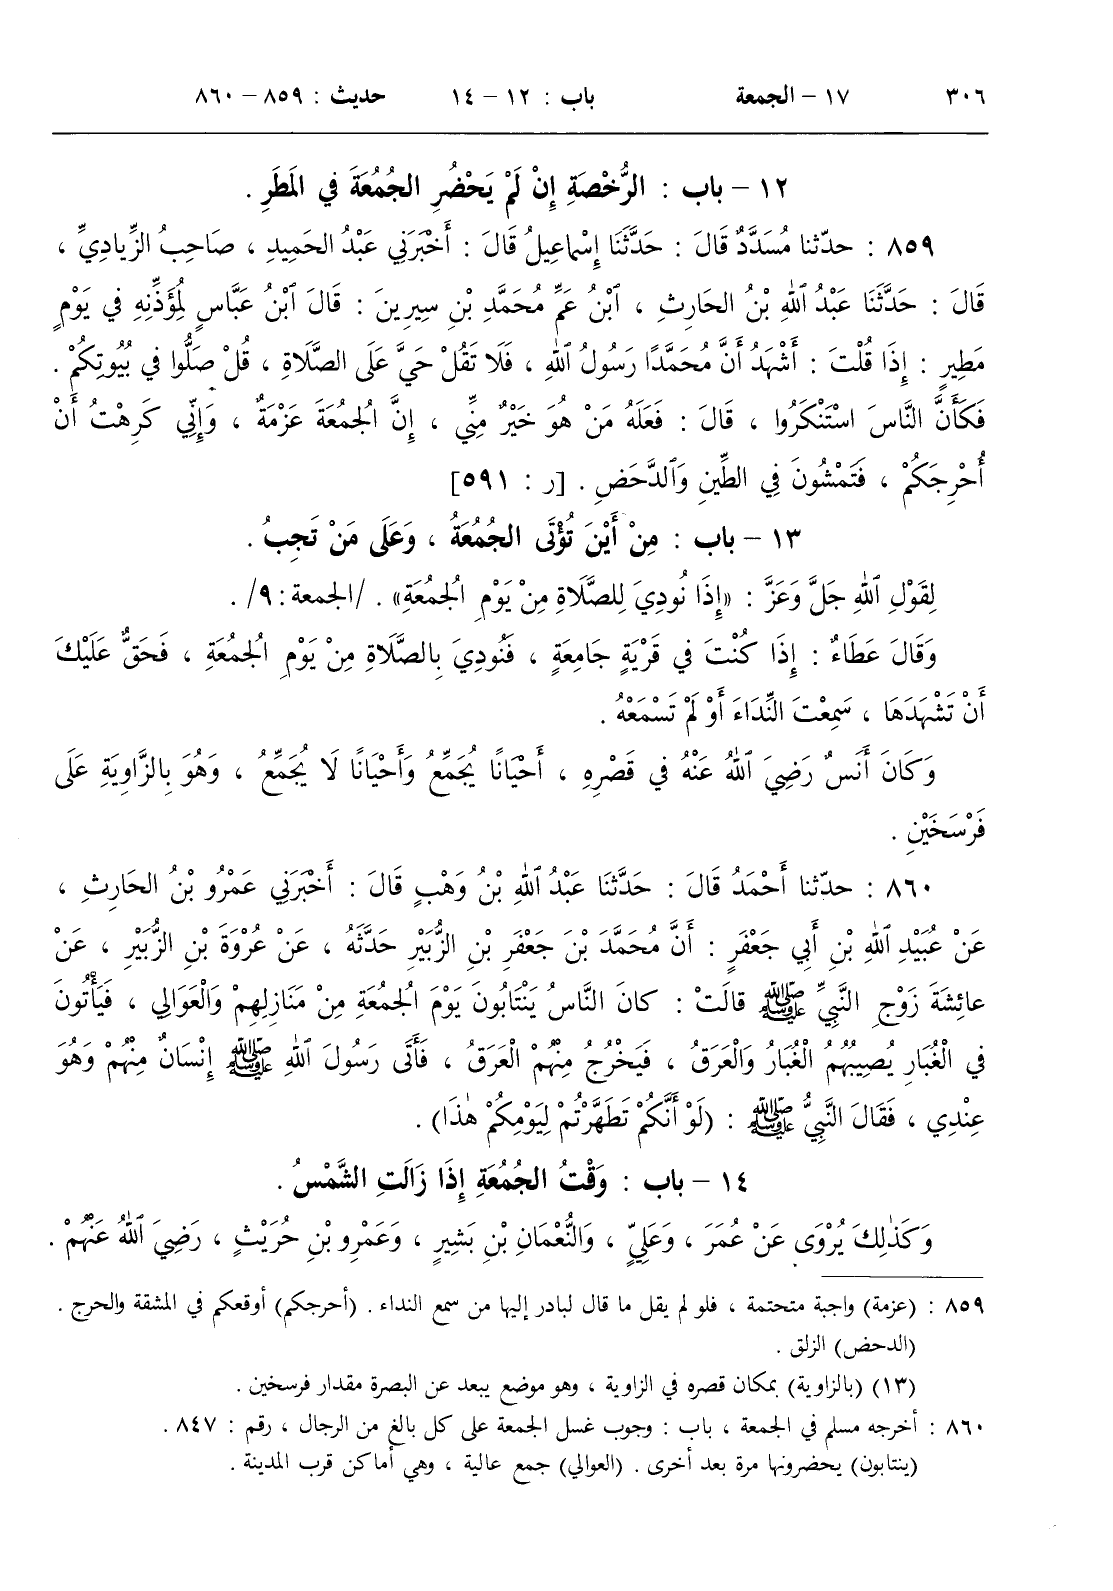 ٣٠٦ ١٧ – الجمعة باب : ١٢ – ١٤ حديث : ٨٥٩ – ٨٦٠
١٢ – باب : الرُّخْصَةِ إِنْ لَمْ يَحْضُرِ الجُمُعَةَ في المَطَرِ .
٨٥٩ : حدّثنا مُسَدَّدٌ قَالَ : حَدَّثَنَا إِسْماعِيلُ قَالَ : أَخْبَرَنِي عَبْدُ الحَمِيدِ ، صَاحِبُ الزِّيادِيِّ ،
قَالَ : حَدَّثَنَا عَبْدُ ٱللهِ بْنُ الحَارِثِ ، ٱبْنُ عَمِّ مُحَمَّدِ بْنِ سِيرِينَ : قَالَ ٱبْنُ عَبَّاسٍ لِمُؤَذِّنِهِ في يَوْمٍ
مَطِيرٍ : إِذَا قُلْتَ : أَشْهَدُ أَنَّ مُحَمَّدًا رَسُولُ ٱللهِ ، فَلَا تَقُلْ حَيَّ عَلَى الصَّلَاةِ ، قُلْ صَلُّوا في بُيُوتِكُمْ .
فَكَأَنَّ النَّاسَ اسْتَنْكَرُوا ، قَالَ : فَعَلَهُ مَنْ هُوَ خَيْرٌ مِنِّي ، إِنَّ الجُمُعَةَ عَزْمَةٌ ، وَإِنِّي كَرِهْتُ أَنْ
أُحْرِجَكُمْ ، فَتَمْشُونَ فِي الطِّينِ وَٱلدَّحَضِ . [ر : ٥٩١]
١٣ – باب : مِنْ أَيْنَ تُؤْتَى الجُمُعَةُ ، وَعَلَى مَنْ تَجِبُ .
لِقَوْلِ ٱللهِ جَلَّ وَعَزَّ : «إِذَا نُودِيَ لِلصَّلَاةِ مِنْ يَوْمِ الجُمُعَةِ» . /الجمعة: ٩/ .
وَقَالَ عَطَاءٌ : إِذَا كُنْتَ في قَرْيَةٍ جَامِعَةٍ ، فَنُودِيَ بِالصَّلَاةِ مِنْ يَوْمِ الجُمُعَةِ ، فَحَقٌّ عَلَيْكَ
أَنْ تَشْهَدَهَا ، سَمِعْتَ النِّدَاءَ أَوْ لَمْ تَسْمَعْهُ .
وَكَانَ أَنَسٌ رَضِيَ ٱللهُ عَنْهُ في قَصْرِهِ ، أَحْيَانًا يُجَمِّعُ وَأَحْيَانًا لَا يُجَمِّعُ ، وَهُوَ بِالزَّاوِيَةِ عَلَى
فَرْسَخَيْنِ .
٨٦٠ : حدّثنا أَحْمَدُ قَالَ : حَدَّثَنَا عَبْدُ ٱللهِ بْنُ وَهْبٍ قَالَ : أَخْبَرَنِي عَمْرُو بْنُ الحَارِثِ ،
عَنْ عُبَيْدِ ٱللهِ بْنِ أَبِي جَعْفَرٍ : أَنَّ مُحَمَّدَ بْنَ جَعْفَرِ بْنِ الزُّبَيْرِ حَدَّثَهُ ، عَنْ عُرْوَةَ بْنِ الزُّبَيْرِ ، عَنْ
عائِشَةَ زَوْجِ النَّبِيِّ ﷺ قَالَتْ : كانَ النَّاسُ يَنْتَابُونَ يَوْمَ الجُمُعَةِ مِنْ مَنَازِلِهِمْ وَالْعَوَالِي ، فَيَأْتُونَ
في الْغُبَارِ يُصِيبُهُمُ الْغُبَارُ وَالْعَرَقُ ، فَيَخْرُجُ مِنْهُمُ الْعَرَقُ ، فَأَتَى رَسُولَ ٱللهِ ﷺ إِنْسَانٌ مِنْهُمْ وَهُوَ
عِنْدِي ، فَقَالَ النَّبِيُّ ﷺ : (لَوْ أَنَّكُمْ تَطَهَّرْتُمْ لِيَوْمِكُمْ هٰذَا) .
١٤ – باب : وَقْتُ الجُمُعَةِ إِذَا زَالَتِ الشَّمْسُ .
وَكَذٰلِكَ يُرْوَى عَنْ عُمَرَ ، وَعَلِيٍّ ، وَالنُّعْمَانِ بْنِ بَشِيرٍ ، وَعَمْرِو بْنِ حُرَيْثٍ ، رَضِيَ ٱللهُ عَنْهُمْ .
٨٥٩ : (عزمة) واجبة متحتمة ، فلو لم يقل ما قال لبادر إليها من سمع النداء . (أحرجكم) أوقعكم في المشقة والحرج .
(الدحض) الزلق .
(١٣) (بالزاوية) بمكان قصره في الزاوية ، وهو موضع يبعد عن البصرة مقدار فرسخين .
٨٦٠ : أخرجه مسلم في الجمعة ، باب : وجوب غسل الجمعة على كل بالغ من الرجال ، رقم : ٨٤٧ .
(ينتابون) يحضرونها مرة بعد أخرى . (العوالي) جمع عالية ، وهي أماكن قرب المدينة .